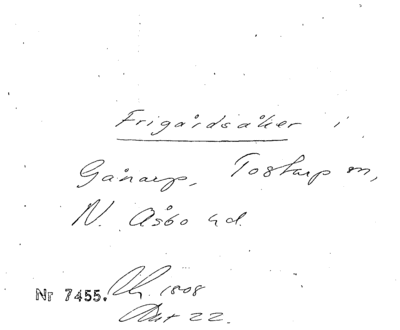 Frigårdsåker i
Gånarp, Tostarp sn,
N. Åsbo hd.
Nr 7455. 1808
22.